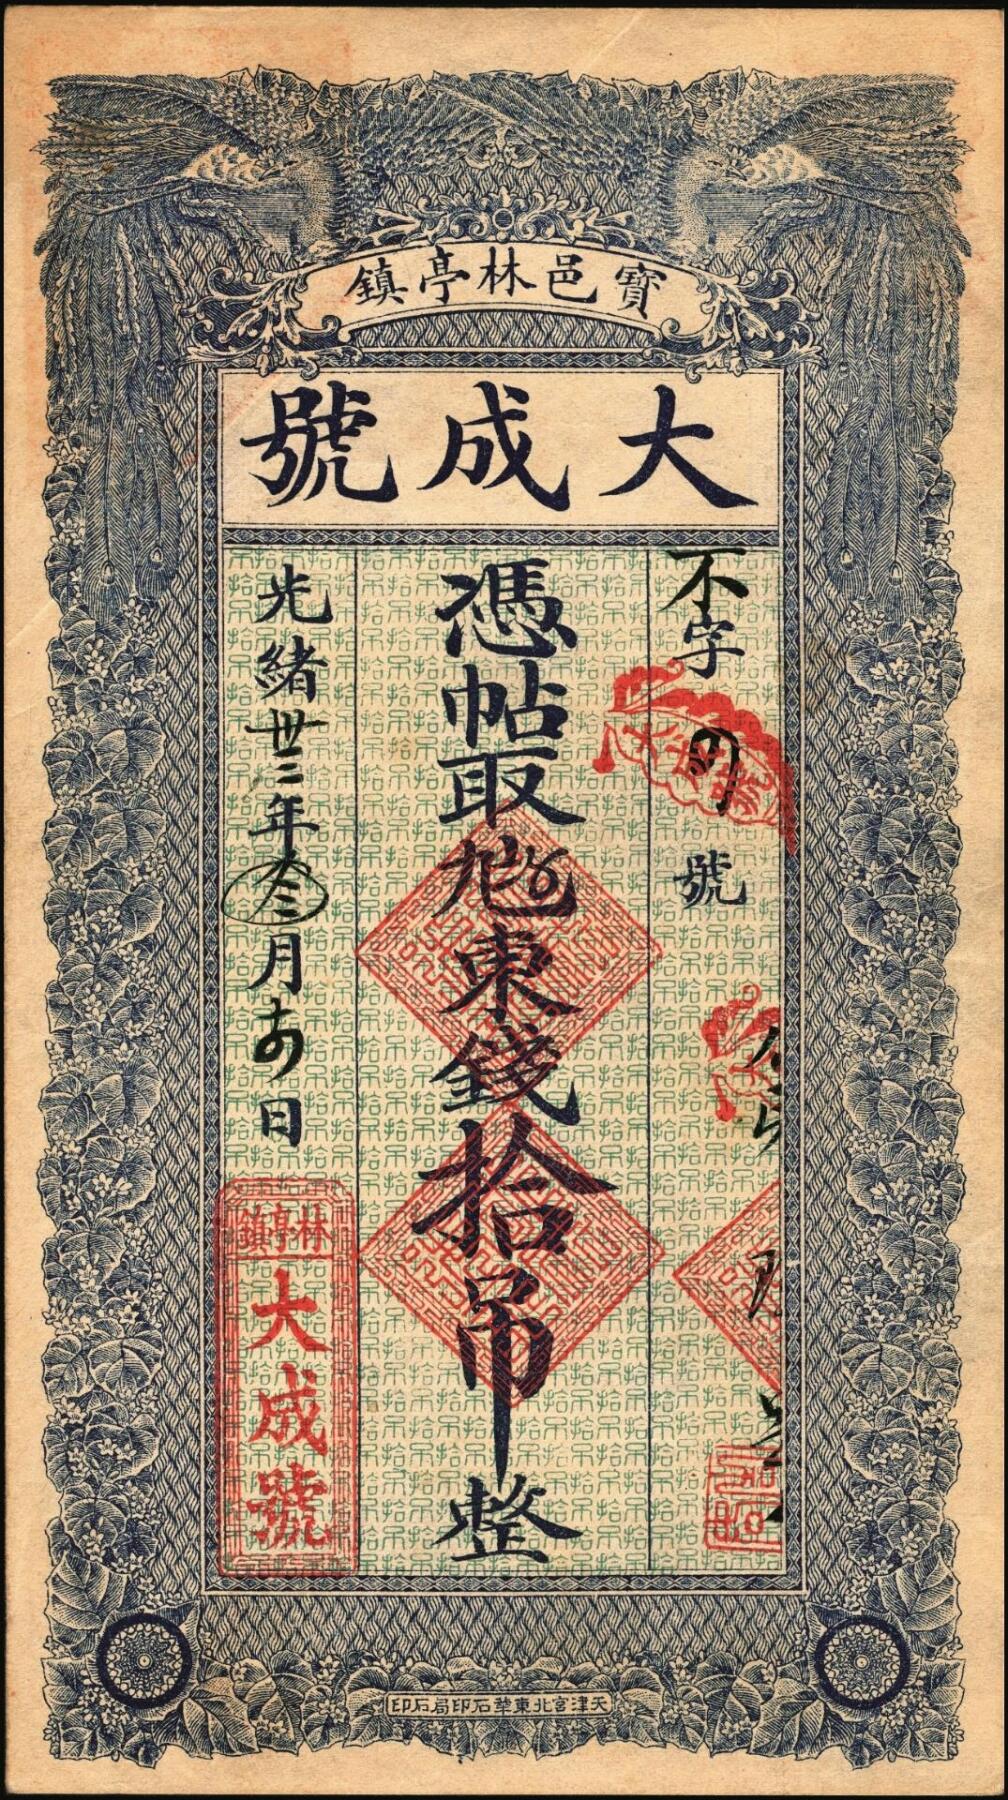 寶邑林亭鎮
大成號
不字
號
憑帖取
東錢拾吊整
光緒卅二年叁月
日
林亭鎮
大成號
大成號
天津宮北東華石印局石印